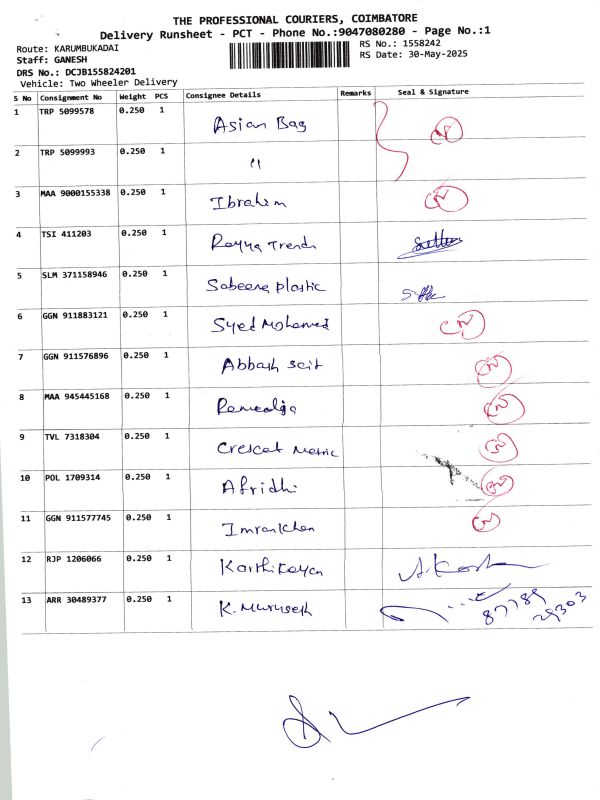 THE PROFESSIONAL COURIERS, COIMBATORE
Delivery Runsheet - PCT - Phone No.:9047080280 - Page No.:1
Route: KARUMBUKADAI
Staff: GANESH
RS No.: 1558242
RS Date: 30-May-2025
DRS No.: DCJB155824201
Vehicle: Two Wheeler Delivery
S No Consignment No Weight PCS Consignee Details Remarks Seal & Signature
1 TRP 5099578 0.250 1 Asian Bag
2 TRP 5099993 0.250 1 "
3 MAA 9000155338 0.250 1 Ibrahim
4 TSI 411203 0.250 1 Rayya Trends
5 SLM 371158946 0.250 1 Sabeena plastic
6 GGN 911883121 0.250 1 Syed Mohamed
7 GGN 911576896 0.250 1 Abbash Seit
8 MAA 945445168 0.250 1
9 TVL 7318304 0.250 1 Crescat Metric
10 POL 1709314 0.250 1 Afridhi
11 GGN 911577745 0.250 1 Imrankhan
12 RJP 1206066 0.250 1 Karthikayan
13 ARR 30489377 0.250 1 K. Murugesh 87789
29303